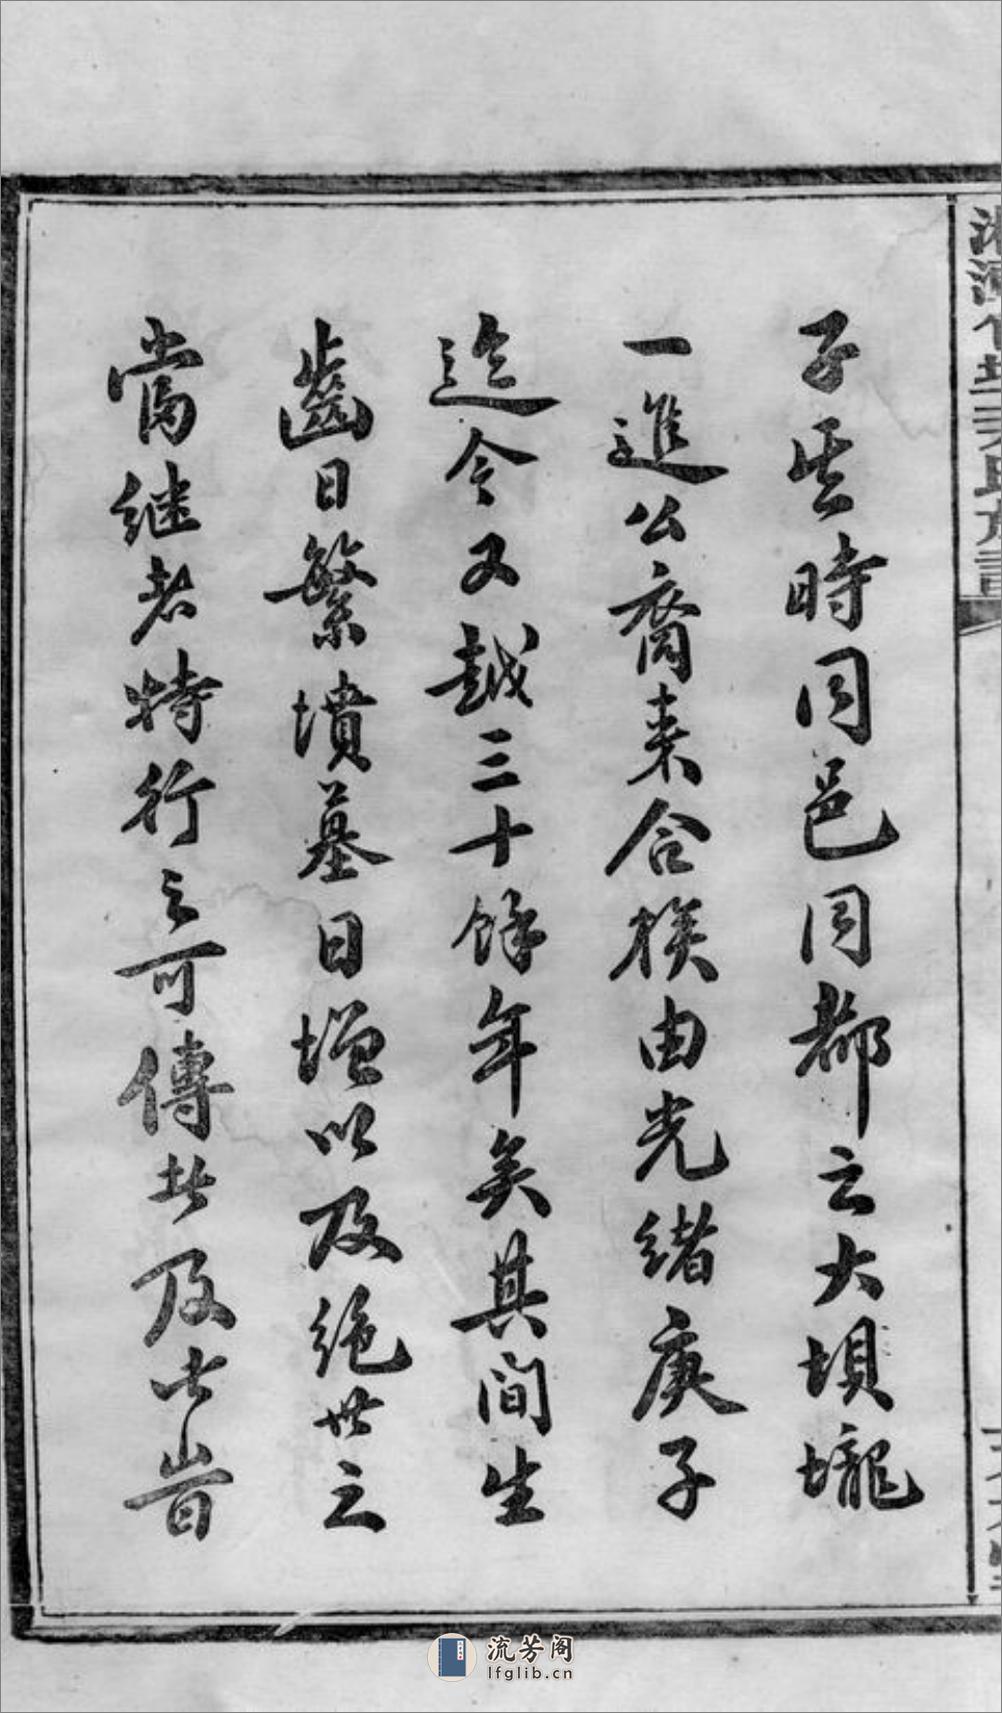 子其時同邑同都之大垻壠
一進公裔来合族由光緒庚子
迄今又越三十餘年矣其間生
齒日繁墳墓日增以及絶世之
當继者特行之可傳者及此皆
流芳阁
lfglib.cn